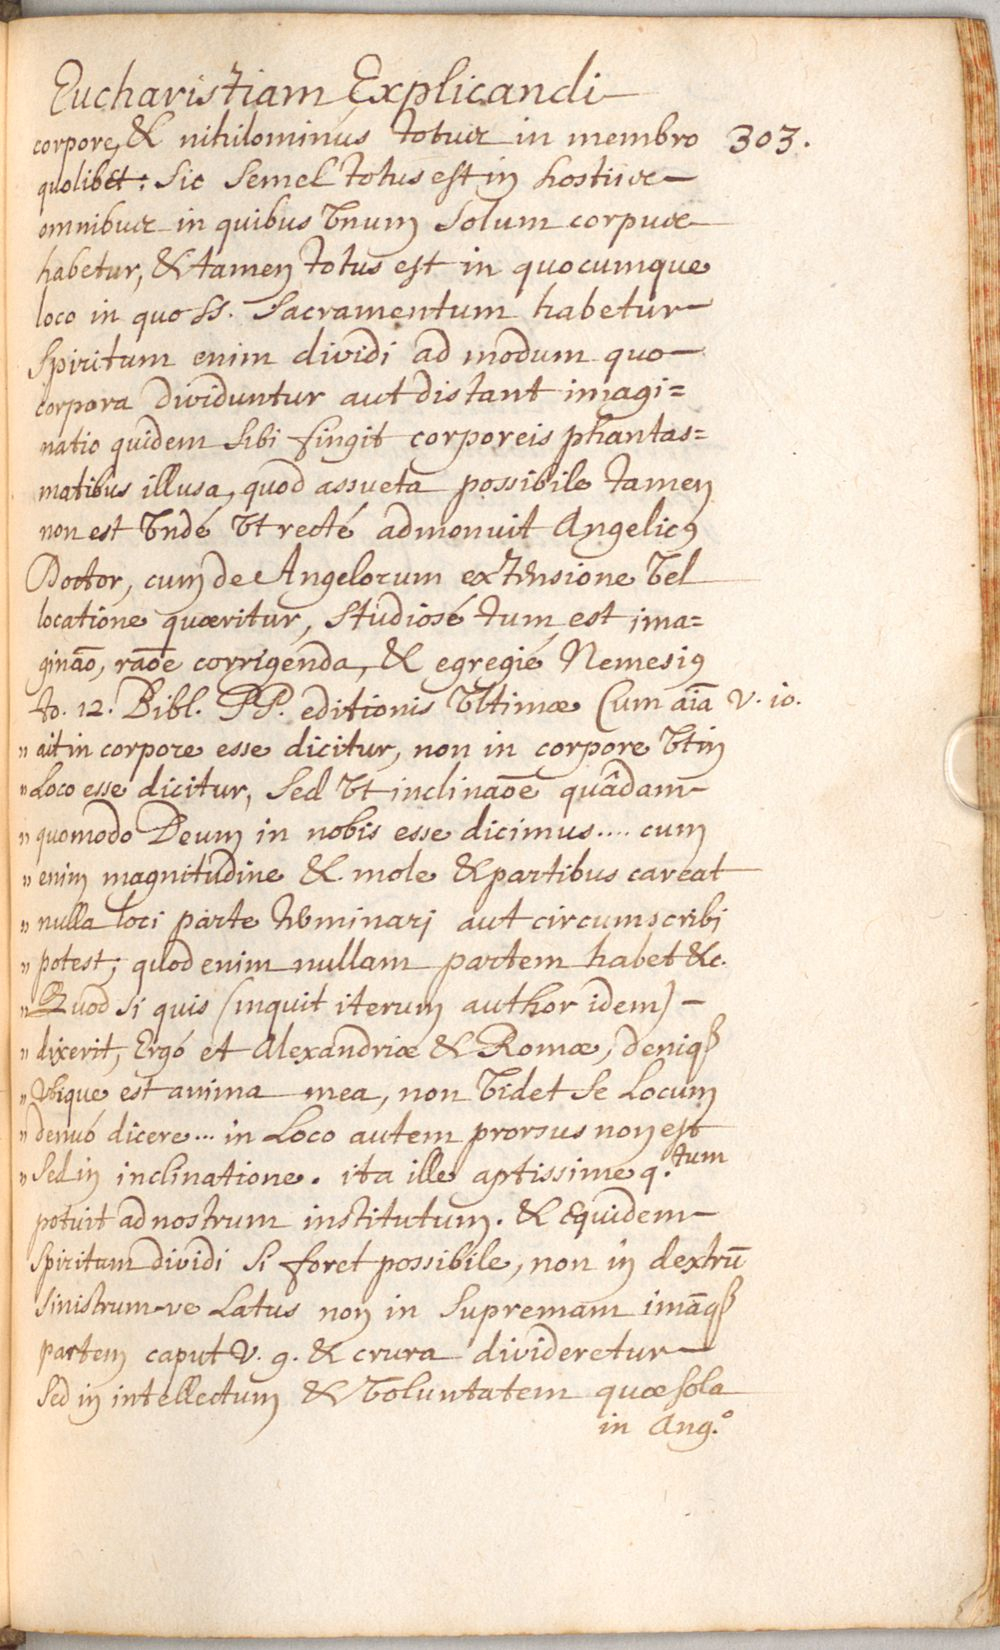 Eucharistiam Explicandi
corpore, & nihilominús totus in membro 303.
quolibet: sic semel totus est in hostiis
omnibus in quibus vnum solum corpus
habetur, & tamen totus est in quocumque
loco in quo SS. Sacramentum habetur
Spiritum enim dividi ad modum quo
corpora dividuntur aut distant imagi=
natio quidem sibi fingit corporeis phantas=
matibus illusa, quod assueta possibile tamen
non est vndé vt recté admonuit Angelicꝯ
Doctor, cum de Angelorum extensione vel
locatione quæritur, studiosé tum est ima=
gināo, rāoe corrigenda, & egregié Nemesiꝯ
to. 12. Bibl. PP. editionis vltimæ Cum aīa V. io.
" ait in corpore esse dicitur, non in corpore vt in
" Loco esse dicitur, sed vt inclināoe quâdam
" quomodo Deum in nobis esse dicimus.... cum
" enim magnitudine & mole & partibus careat
" nulla loci parte terminari aut circumscribi
" potest; quod enim nullam partem habet &c.
" Quod si quis (inquit iterum author idem) -
" dixerit, Ergó et Alexandriæ & Romæ, deniqꝫ
" Vbique est anima mea, non videt se Locum
" denuó dicere... in Loco autem prorsus non est
" Sed in inclinatione. ita ille aptissime q.tum
potuit ad nostrum institutum. & Equidem
Spiritum dividi si foret possibile, non in dextrū
sinistrum-ve Latus non in supremam imāqꝫ
partem caput V. g. & crura divideretur
sed in intellectum & voluntatem quæ sola
in Ang.o